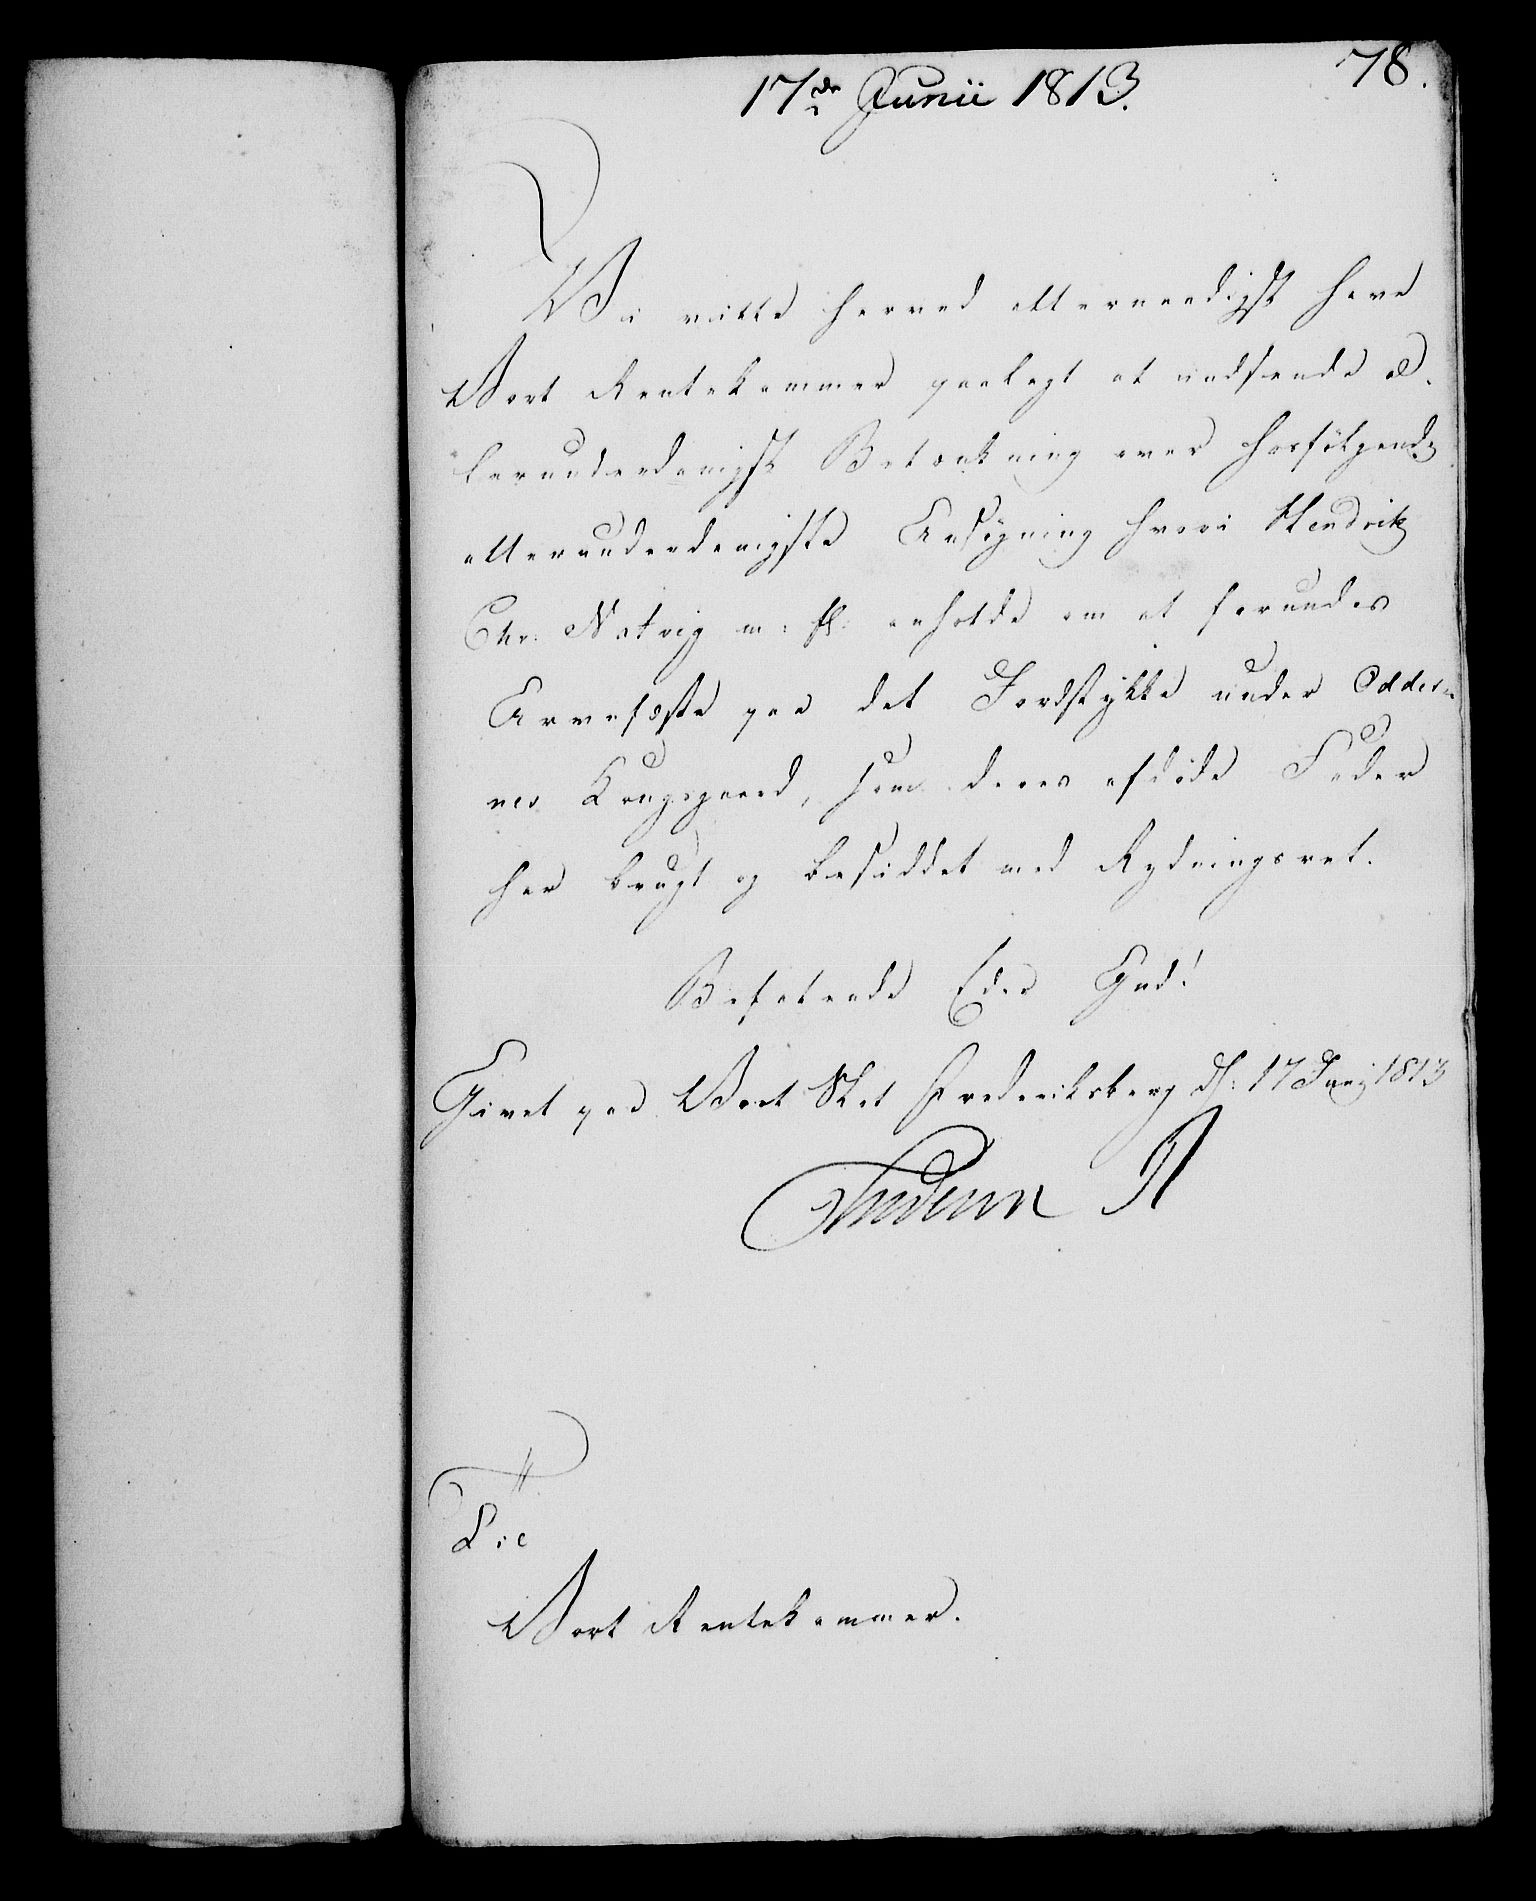 78.
17de Junii 1813.
Vi ville herved allernaadigst have
Vort Rentekammer paalagt at indsende a¬
lerunderdanigst Betænkning over hosfølgende
allerunderdanigste Ansøgning hvori Hendrik
Chr. Natvig m: fl: anholde om at forundes
Arvefæste paa det Jordstykke under Odder¬
nes Krugsgaard, som deres afdöde Fader
har brugt og besiddet med Rydningsret.
Befalende Eder Gud!
Givet paa Vort Slot Frederiksberg d: 17 Junij 1813
Friderich R
Til
Vort Rentekammer.